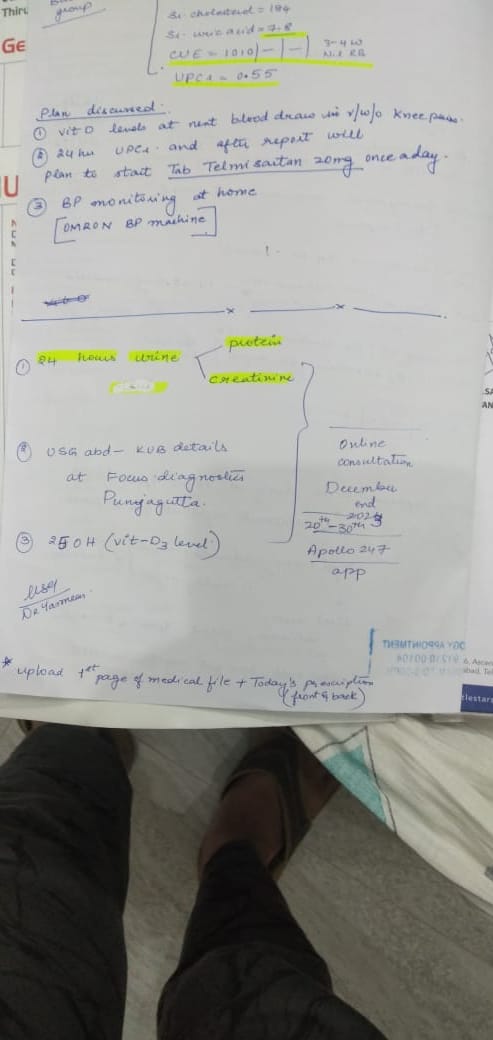 Thiru
group
Sr. cholesterol = 184
Ge
Sr. uric acid = 7.8
CUE = 1010/-/-/ 3-4 W
Nil RB
UPCR = 0.55
Plan discussed:
① Vit D levels at next blood draw in v/w/o knee pains.
② 24 hr UPCR. and after report will
plan to start Tab Telmisartan 20mg once a day.
③ BP monitoring at home
[OMRON BP machine]
① 24 hours urine protein
creatinine
② USG abd - KUB details
at Focus diagnostics
Punjagutta.
③ 25OH (vit-D3 level)
Online
consultation
December
end
20th-30th
Apollo 247
app
Dr Yasmeen
* upload 1st page of medical file + Today's prescription
(front & back)